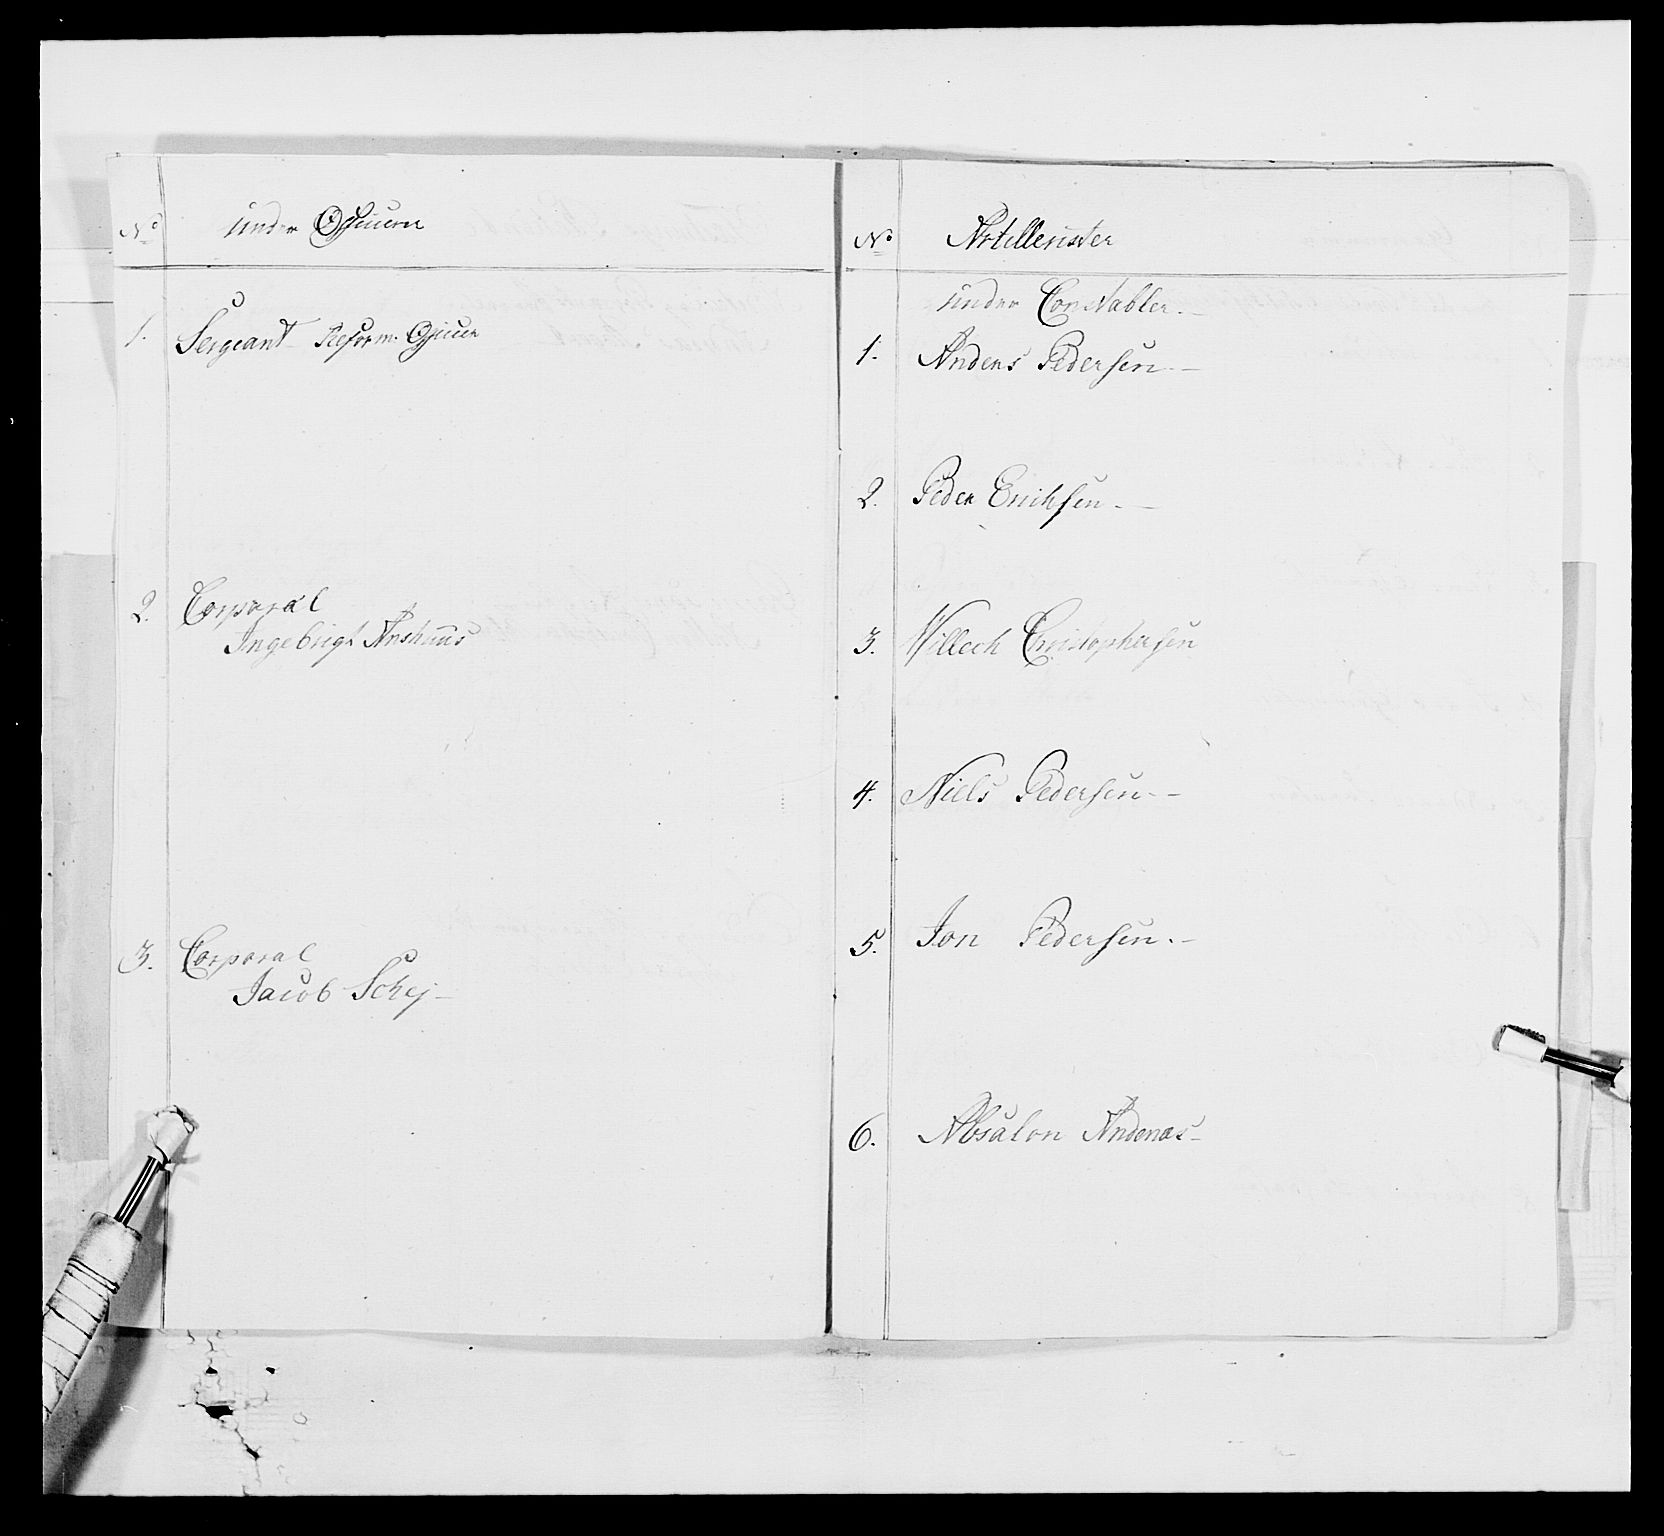 No under Officerer
1. Sergeant Reform. Officer
2. Corporal
Ingebrigt Anshuus
3. Corporal
Jacob Schej
No Artillerister
under Constabler.
1. Anders Pedersen.
2. Peder Erichsen.
3. Willech Christophersen
4. Niels Pedersen.
5. Jon Pedersen.
6. Absalon Andenæs